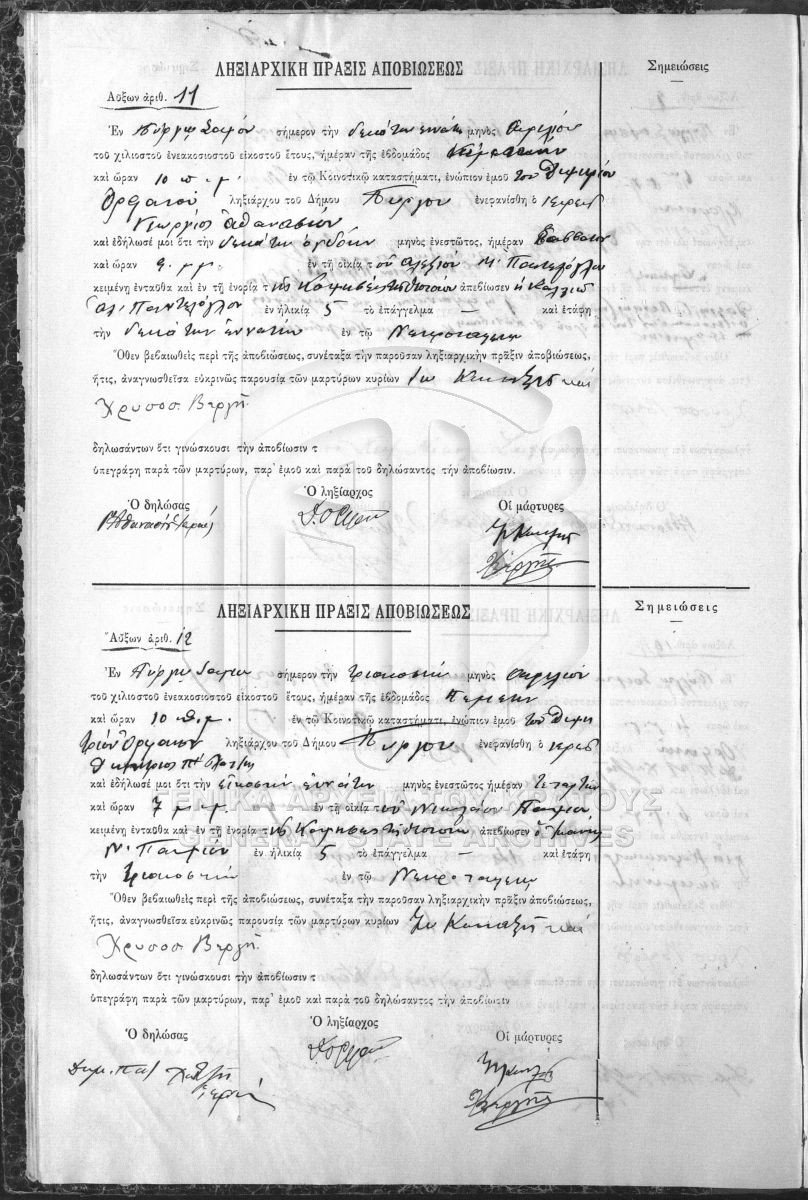 ΛΗΞΙΑΡΧΙΚΗ ΠΡΑΞΙΣ ΑΠΟΒΙΩΣΕΩΣ
Σημειώσεις
Αὔξων ἀριθ. 11
Ἐν Πύργῳ Σάμου σήμερον τὴν δεκάτην ἐνάτην μηνὸς Ἀπριλίου
τοῦ χιλιοστοῦ ἐνεακοσιοστοῦ εἰκοστοῦ ἔτους, ἡμέραν τῆς ἑβδομάδος Κυριακὴν
καὶ ὥραν 10 π.μ. ἐν τῷ Κοινοτικῷ καταστήματι, ἐνώπιον ἐμοῦ τοῦ Δημητρίου
Ὀρφανοῦ ληξιάρχου τοῦ Δήμου Πύργου ἐνεφανίσθη ὁ ἱερεὺς
Γεώργιος Ἀθανασίου
καὶ ἐδήλωσέ μοι ὅτι τὴν δεκάτην ὀγδόην μηνὸς ἐνεστῶτος, ἡμέραν Σάββατον
καὶ ὥραν μ.μ. ἐν τῇ οἰκίᾳ τοῦ Ἀλεξίου Μ. Παντελόγλου
κειμένῃ ἐνταῦθα καὶ ἐν τῇ ἐνορίᾳ τῆς Κοιμήσεως τῆς Θεοτόκου ἀπεβίωσεν ἡ Καλλιώ
Ἀλ. Παντελόγλου ἐν ἡλικίᾳ 5 τὸ ἐπάγγελμα — καὶ ἐτάφη
τὴν δεκάτην ἐννάτην ἐν τῷ Νεκροταφείῳ
Ὅθεν βεβαιωθεὶς περὶ τῆς ἀποβιώσεως, συνέταξα τὴν παροῦσαν ληξιαρχικὴν πρᾶξιν ἀποβιώσεως,
ἥτις, ἀναγνωσθεῖσα εὐκρινῶς παρουσίᾳ τῶν μαρτύρων κυρίων καὶ
Χρυσοσ. Βεργῆ
δηλωσάντων ὅτι γινώσκουσι τὴν ἀποβίωσιν τ
ὑπεγράφη παρὰ τῶν μαρτύρων, παρ' ἐμοῦ καὶ παρὰ τοῦ δηλώσαντος τὴν ἀποβίωσιν.
Ὁ δηλώσας
Ὁ ληξίαρχος
Οἱ μάρτυρες
ΛΗΞΙΑΡΧΙΚΗ ΠΡΑΞΙΣ ΑΠΟΒΙΩΣΕΩΣ
Σημειώσεις
Αὔξων ἀριθ. 12
Ἐν Πύργῳ Σάμου σήμερον τὴν τριακοστὴν μηνὸς Ἀπριλίου
τοῦ χιλιοστοῦ ἐνεακοσιοστοῦ εἰκοστοῦ ἔτους, ἡμέραν τῆς ἑβδομάδος Πέμπτην
καὶ ὥραν 10 π.μ. ἐν τῷ Κοινοτικῷ καταστήματι, ἐνώπιον ἐμοῦ τοῦ Δημη
τρίου Ὀρφανοῦ ληξιάρχου τοῦ Δήμου Πύργου ἐνεφανίσθη ὁ ἱερεὺς
Δημήτριος
καὶ ἐδήλωσέ μοι ὅτι τὴν εἰκοστὴν ἐννάτην μηνὸς ἐνεστῶτος ἡμέραν Τετάρτην
καὶ ὥραν 7 μ.μ. ἐν τῇ οἰκίᾳ τοῦ Νικολάου
κειμένῃ ἐνταῦθα καὶ ἐν τῇ ἐνορίᾳ τῆς Κοιμήσεως τῆς Θεοτόκου ἀπεβίωσεν ὁ Ἰωάννης
Ν. ἐν ἡλικίᾳ 5 τὸ ἐπάγγελμα — καὶ ἐτάφη
τὴν τριακοστὴν ἐν τῷ Νεκροταφείῳ
Ὅθεν βεβαιωθεὶς περὶ τῆς ἀποβιώσεως, συνέταξα τὴν παροῦσαν ληξιαρχικὴν πρᾶξιν ἀποβιώσεως,
ἥτις, ἀναγνωσθεῖσα εὐκρινῶς παρουσίᾳ τῶν μαρτύρων κυρίων καὶ
Χρυσοσ. Βεργῆ
δηλωσάντων ὅτι γινώσκουσι τὴν ἀποβίωσιν τ
ὑπεγράφη παρὰ τῶν μαρτύρων, παρ' ἐμοῦ καὶ παρὰ τοῦ δηλώσαντος τὴν ἀποβίωσιν
Ὁ δηλώσας
Ὁ ληξίαρχος
Οἱ μάρτυρες
ΓΕΝΙΚΑ ΑΡΧΕΙΑ ΤΟΥ ΚΡΑΤΟΥΣ
GENERAL STATE ARCHIVES